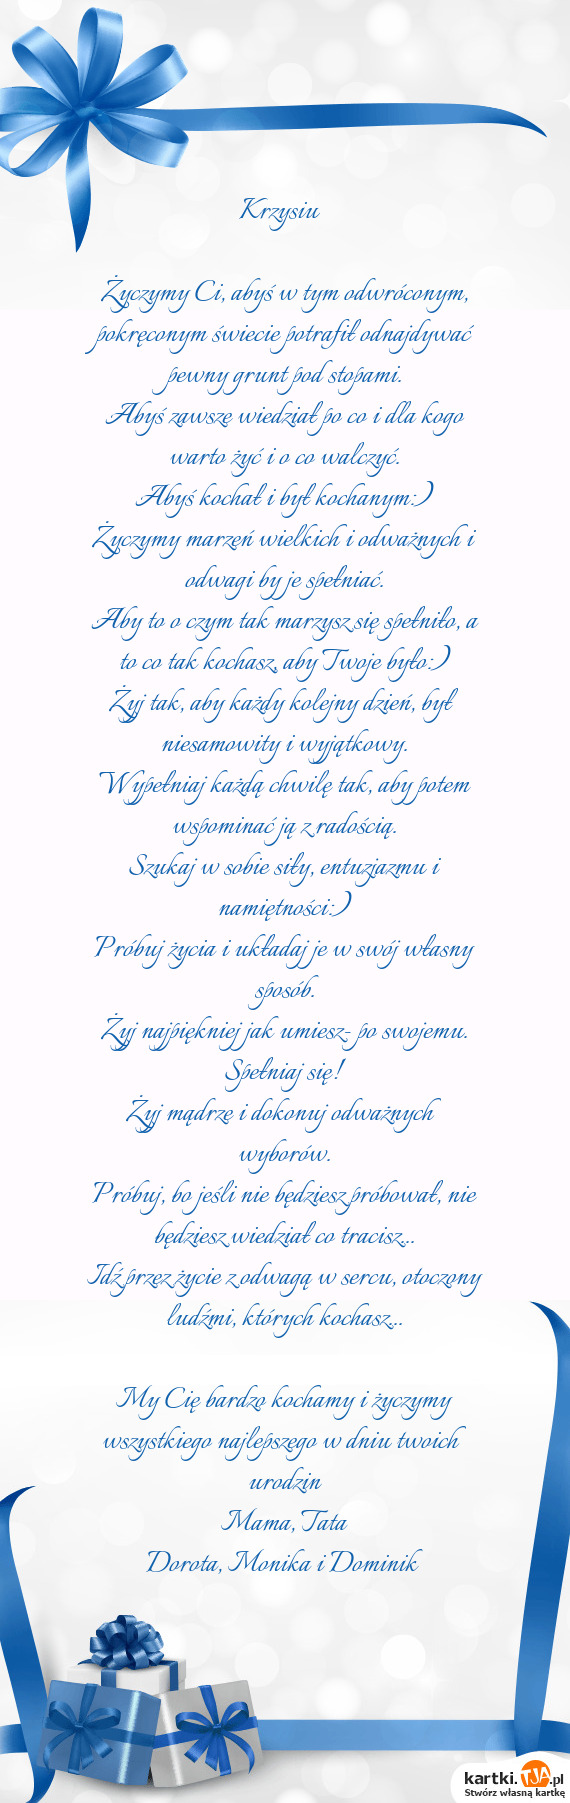 Krzysiu
Życzymy Ci, abyś w tym odwróconym,
pokręconym świecie potrafił odnajdywać
pewny grunt pod stopami.
Abyś zawsze wiedział po co i dla kogo
warto żyć i o co walczyć.
Abyś kochał i był kochanym:)
Życzymy marzeń wielkich i odważnych i
odwagi by je spełniać.
Aby to o czym tak marzysz się spełniło, a
to co tak kochasz, aby Twoje było:)
Żyj tak, aby każdy kolejny dzień, był
niesamowity i wyjątkowy.
Wypełniaj każdą chwilę tak, aby potem
wspominać ją z radością.
Szukaj w sobie siły, entuzjazmu i
namiętności:)
Próbuj życia i układaj je w swój własny
sposób.
Żyj najpiękniej jak umiesz- po swojemu.
Spełniaj się!
Żyj mądrze i dokonuj odważnych
wyborów.
Próbuj, bo jeśli nie będziesz próbował, nie
będziesz wiedział co tracisz...
Idź przez życie z odwagą w sercu, otoczony
ludźmi, których kochasz...
My Cię bardzo kochamy i życzymy
wszystkiego najlepszego w dniu twoich
urodzin
Mama, Tata
Dorota, Monika i Dominik
kartki.TJA.pl
Stwórz własną kartkę